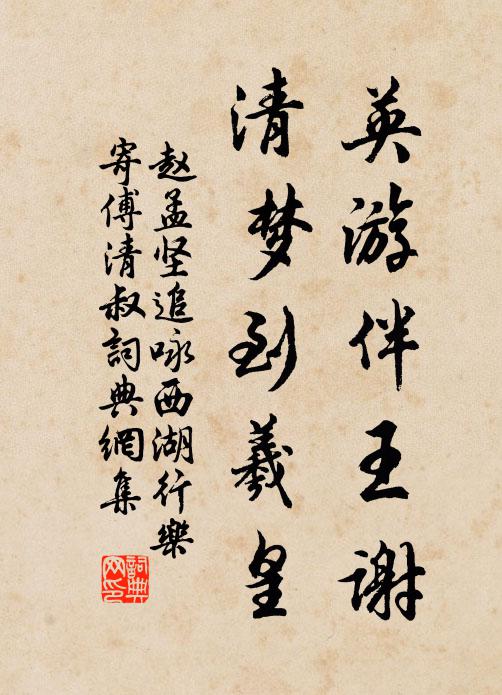 英游伴王谢
清梦到羲皇
赵孟坚追咏西湖行樂
寄傅清叔詞典網集
詞典网印